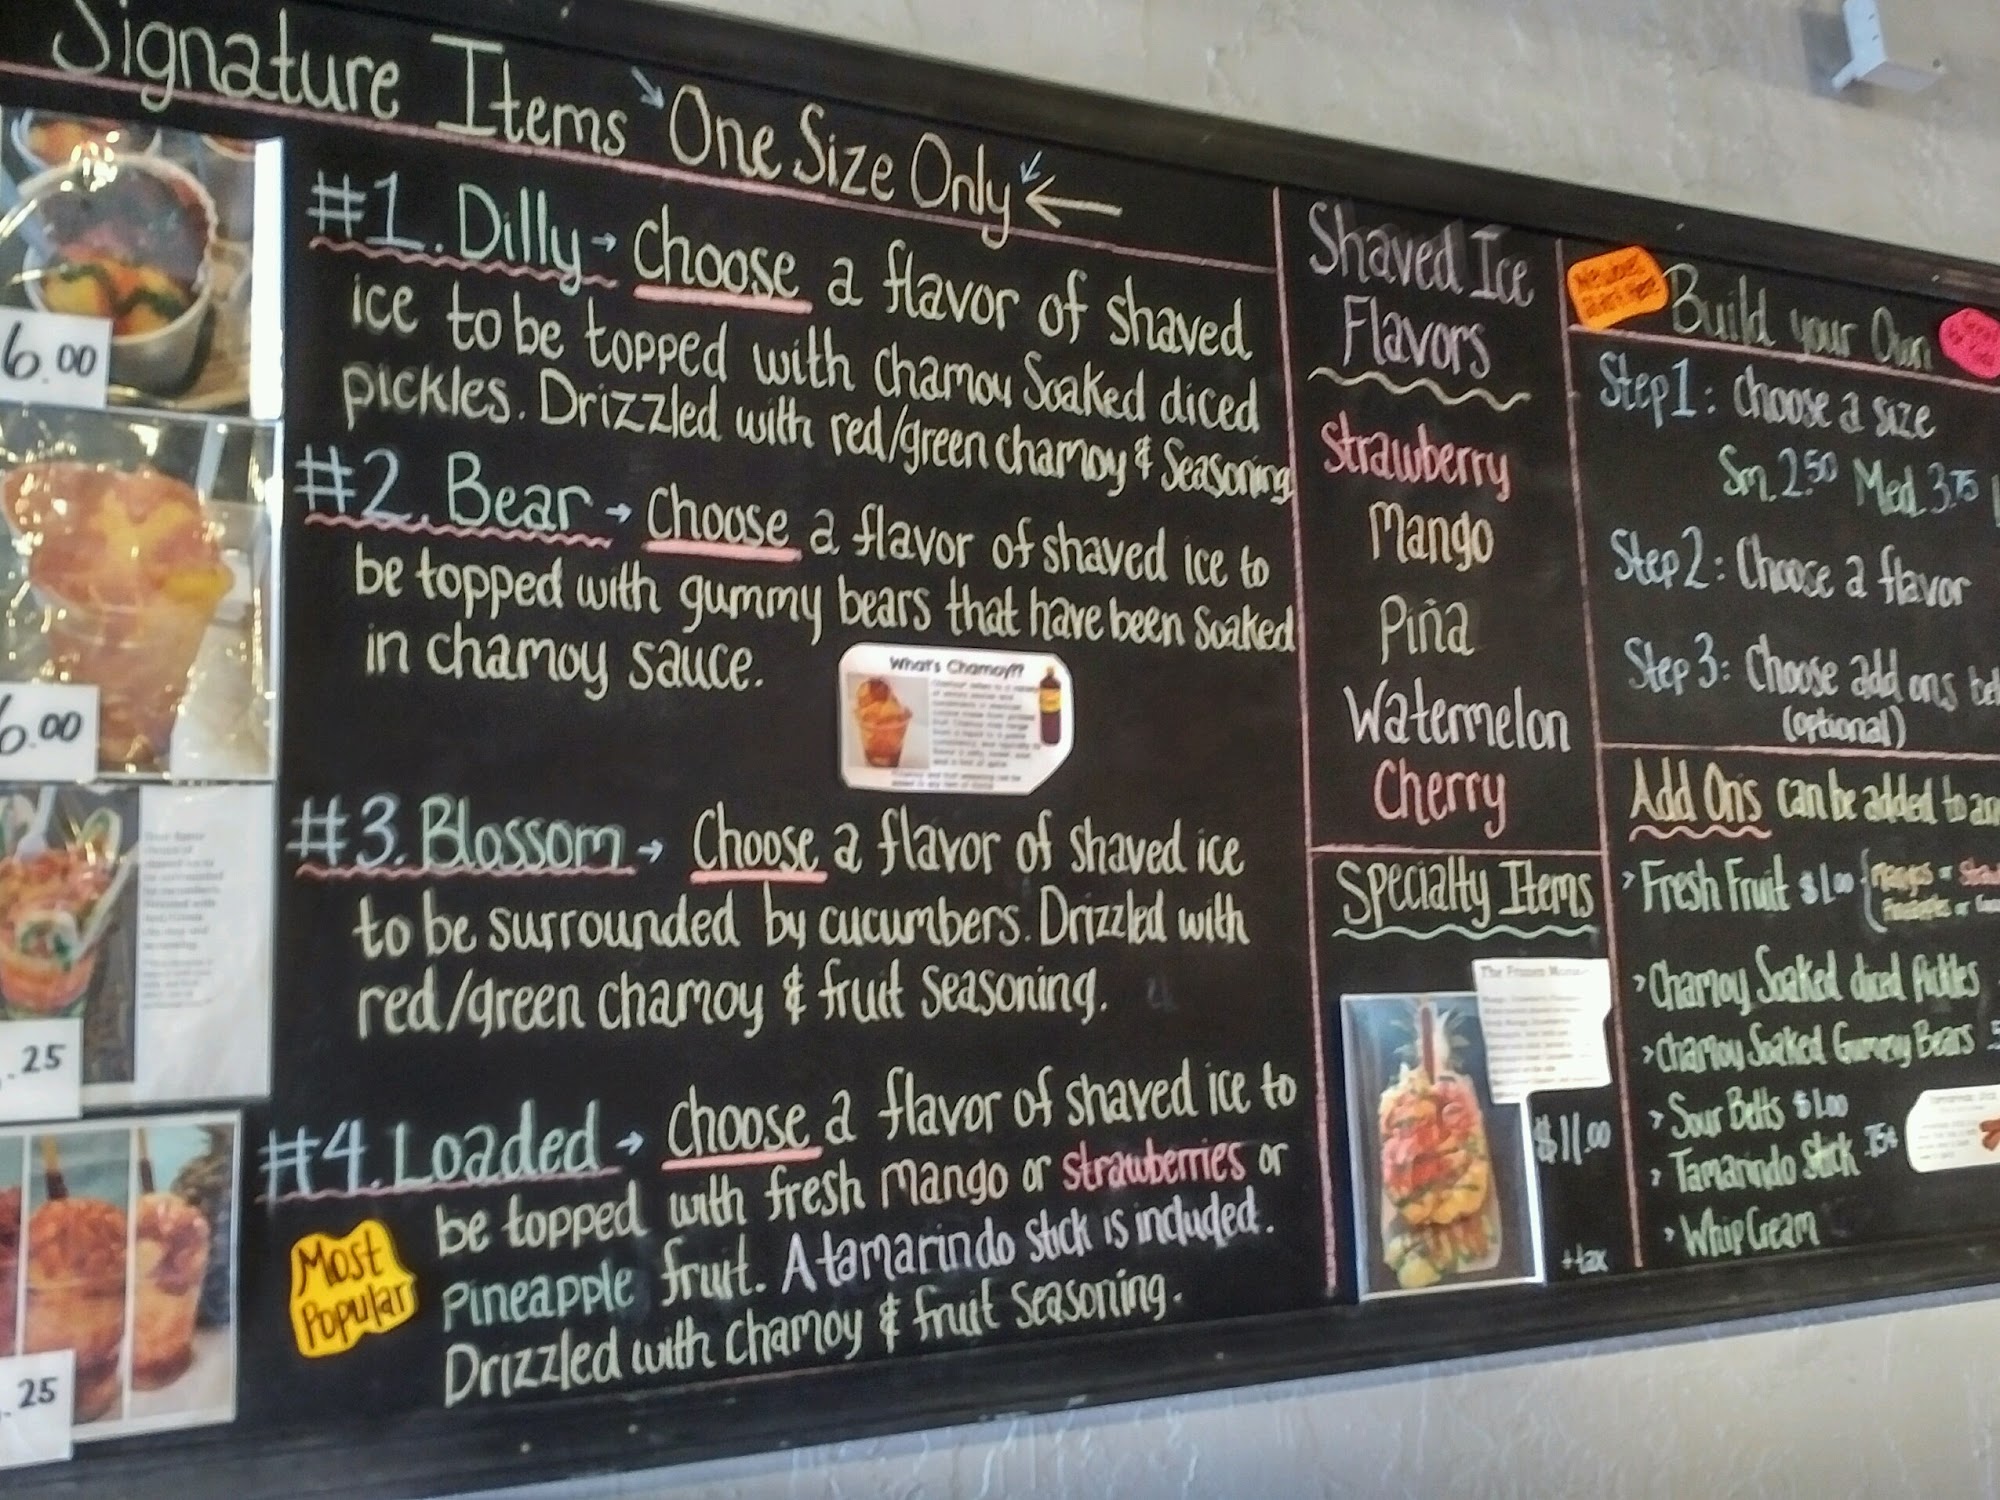 Signature Items One Size Only
#1. Dilly → Choose a flavor of shaved
ice to be topped with chamoy Soaked diced
pickles. Drizzled with red/green chamoy & Seasoning
#2. Bear → Choose a flavor of shaved ice to
be topped with gummy bears that have been Soaked
in chamoy sauce.
What's Chamoy??
#3. Blossom → Choose a flavor of shaved ice
to be surrounded by cucumbers. Drizzled with
red/green chamoy & fruit seasoning.
#4. Loaded → Choose a flavor of shaved ice to
be topped with fresh mango or strawberries or
Pineapple fruit. A tamarindo stick is included.
Drizzled with chamoy & fruit seasoning.
Most
Popular
6.00
6.00
.25
.25
Shaved Ice
Flavors
Strawberry
Mango
Piña
Watermelon
Cherry
Specialty Items
The Frozen
$11.00
+tax
Build your Own
Step 1: Choose a size
Sm. 2.50 Med. 3.75
Step 2: Choose a flavor
Step 3: Choose add ons
(optional)
Add Ons can be added to
> Fresh Fruit $1.00
Mangos or
Pineapples or
> Chamoy Soaked diced Pickles
> Chamoy Soaked Gummy Bears
> Sour Belts $1.00
> Tamarindo Stick .75¢
> Whip Cream